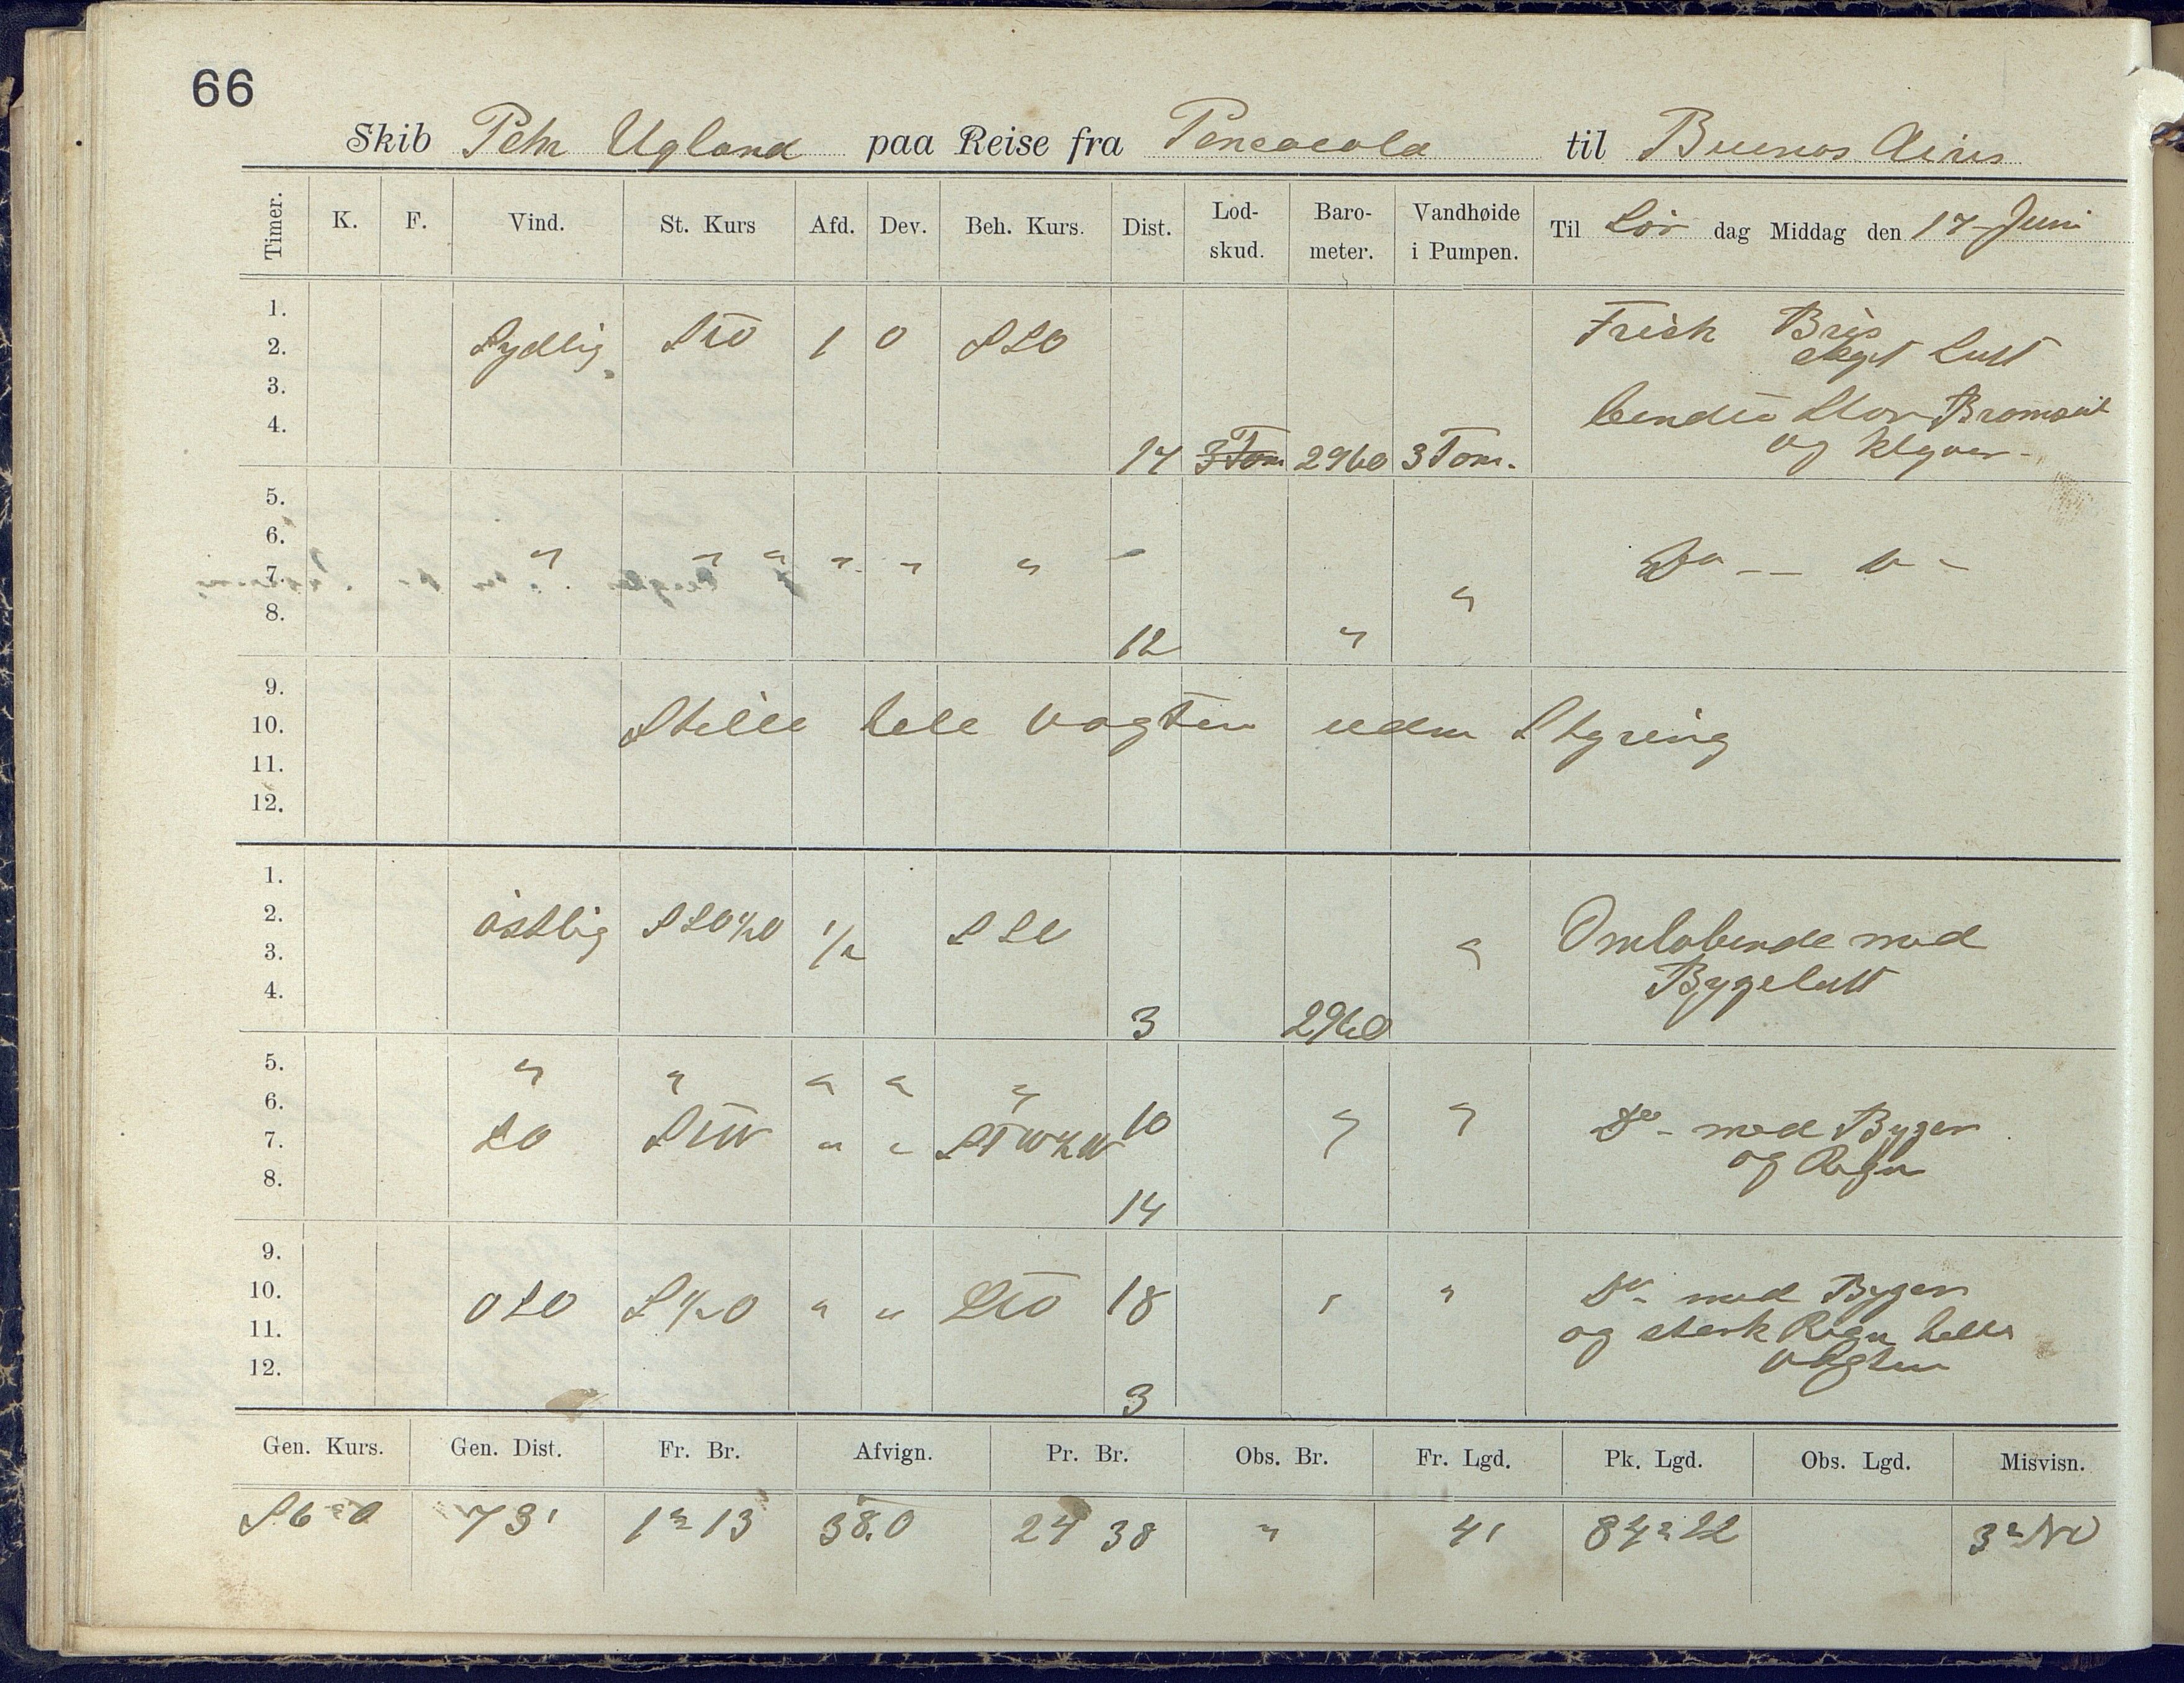 66
Skib Pehr Ugland paa Reise fra Pencacola til Buenos Aires
Timer. K. F. Vind. St. Kurs Afd. Dev. Beh. Kurs. Dist. Lod-skud. Baro-meter. Vandhøide i Pumpen. Til Lör dag Middag den 17 Juni
1.
2. Sydlig StO 1 0 SSO Frisk Bris
skyet Luft
3.
4. Stor Bramseil
14 3 Tom 2960 3 Tom. og Klyver
5.
6. " " " " " " Do
7. "
8.
12 "
9.
10. Stille hele Vagten uden Styring
11.
12.
1.
2. östlig SSO½O ½ SSO Omlobende med
3. " Bygeluft
4.
3 2960
5. " " " " "
6. 10 " " Do - med Byger
7. SO StW " " StW½W og Regn
8.
14
9.
10. OSO S½O " " StO 18 " " Do - med Byger
11. og sterk Regn hele
12. Vagten
3
Gen. Kurs. Gen. Dist. Fr. Br. Afvign. Pr. Br. Obs. Br. Fr. Lgd. Pk. Lgd. Obs. Lgd. Misvisn.
73' 1° 13 38.0 24 38 " 41 84° 22 3° NO